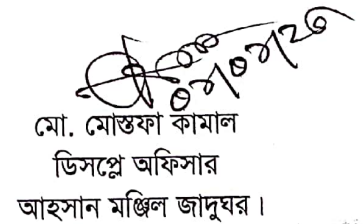 মো. মোস্তফা কামাল
ডিসপ্লে অফিসার
আহসান মঞ্জিল জাদুঘর।